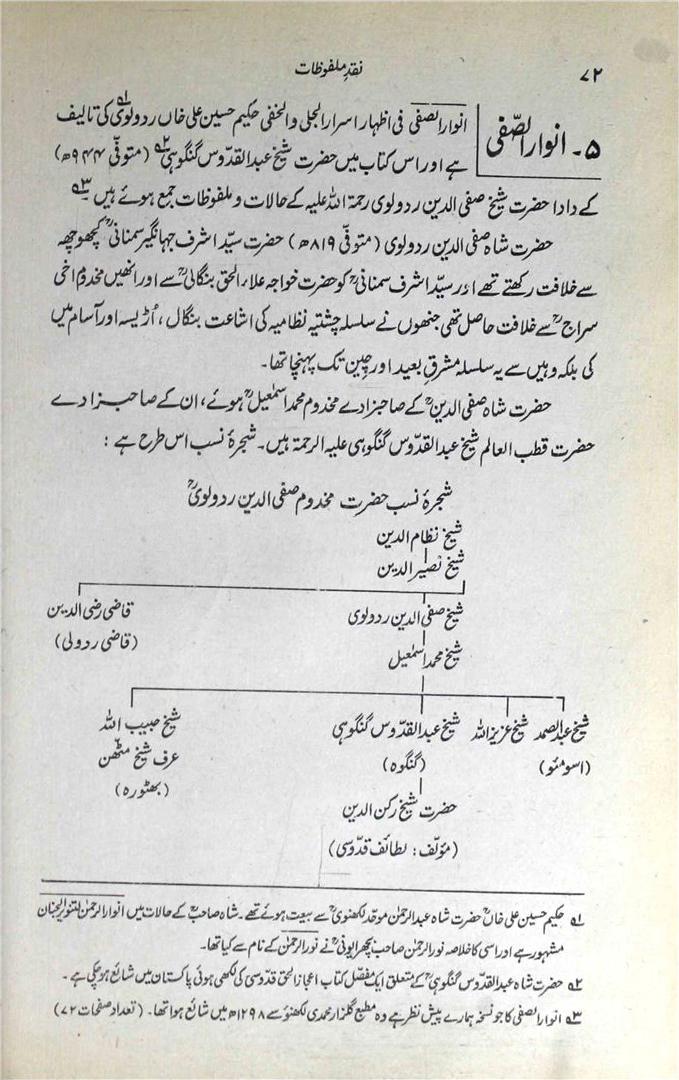 ۷۲
نقدِ ملفوظات
۵۔ انوار الصّفی
انوار الصّفی فی اظہار اسرار الجلی والخفی حکیم حسین علی خاں ردولوی۱؎ کی تالیف
ہے اور اس کتاب میں حضرت شیخ عبدالقدّوس گنگوہی۲؎ (متوفّی ۹۴۴ھ)
کے دادا حضرت شیخ صفی الدین ردولوی رحمۃ اللہ علیہ کے حالات و ملفوظات جمع ہوئے ہیں ۳؎
حضرت شاہ صفی الدین ردولوی (متوفّی ۸۱۹ھ) حضرت سیّد اشرف جہانگیر سمنانیؒ کچھوچھہ
سے خلافت رکھتے تھے اور سیّد اشرف سمنانیؒ کو حضرت خواجہ علاءالحق بنگالیؒ سے اور انھیں مخدوم اخی
سراجؒ سے خلافت حاصل تھی جنھوں نے سلسلہ چشتیہ نظامیہ کی اشاعت بنگال، اُڑیسہ اور آسام میں
کی بلکہ وہیں سے یہ سلسلہ مشرقِ بعید اور چین تک پہنچا تھا۔
حضرت شاہ صفی الدینؒ کے صاحبزادے مخدوم محمد اسمٰعیلؒ ہوئے، ان کے صاحبزادے
حضرت قطب العالم شیخ عبدالقدّوس گنگوہی علیہ الرحمۃ ہیں۔ شجرۂ نسب اس طرح ہے :
شجرۂ نسب حضرت مخدوم صفی الدین ردولویؒ
شیخ نظام الدین
شیخ نصیر الدین
شیخ صفی الدین ردولوی
قاضی رضی الدین
(قاضی ردولی)
شیخ محمد اسمٰعیل
شیخ عبدالصمد
(اسومئو)
شیخ عزیز اللہ
شیخ عبدالقدّوس گنگوہی
(گنگوہ)
شیخ حبیب اللہ
عرف شیخ مٹھن
(بھٹورہ)
حضرت شیخ رکن الدین
(مؤلف: لطائف قدّوسی)
۱؎ حکیم حسین علی خاںؒ حضرت شاہ عبدالرحمٰن موحّد لکھنویؒ سے بیعت ہوئے تھے۔ شاہ صاحبؒ کے حالات میں انوار الرحمٰن لتنویر الجنان
مشہور ہے اور اسی کا خلاصہ نور الرحمٰن صاحب بچھرایونیؒ نے نور الرحمٰن کے نام سے کیا تھا۔
۲؎ حضرت شاہ عبدالقدّوس گنگوہیؒ کے متعلق ایک مفصّل کتاب اعجاز الحق قدّوسی کی لکھی ہوئی پاکستان میں شائع ہو چکی ہے۔
۳؎ انوار الصّفی کا جو نسخہ ہمارے پیش نظر ہے وہ مطبع گلزار محمدی لکھنؤ سے ۱۲۹۸ھ میں شائع ہوا تھا۔ (تعداد صفحات ۷۲)